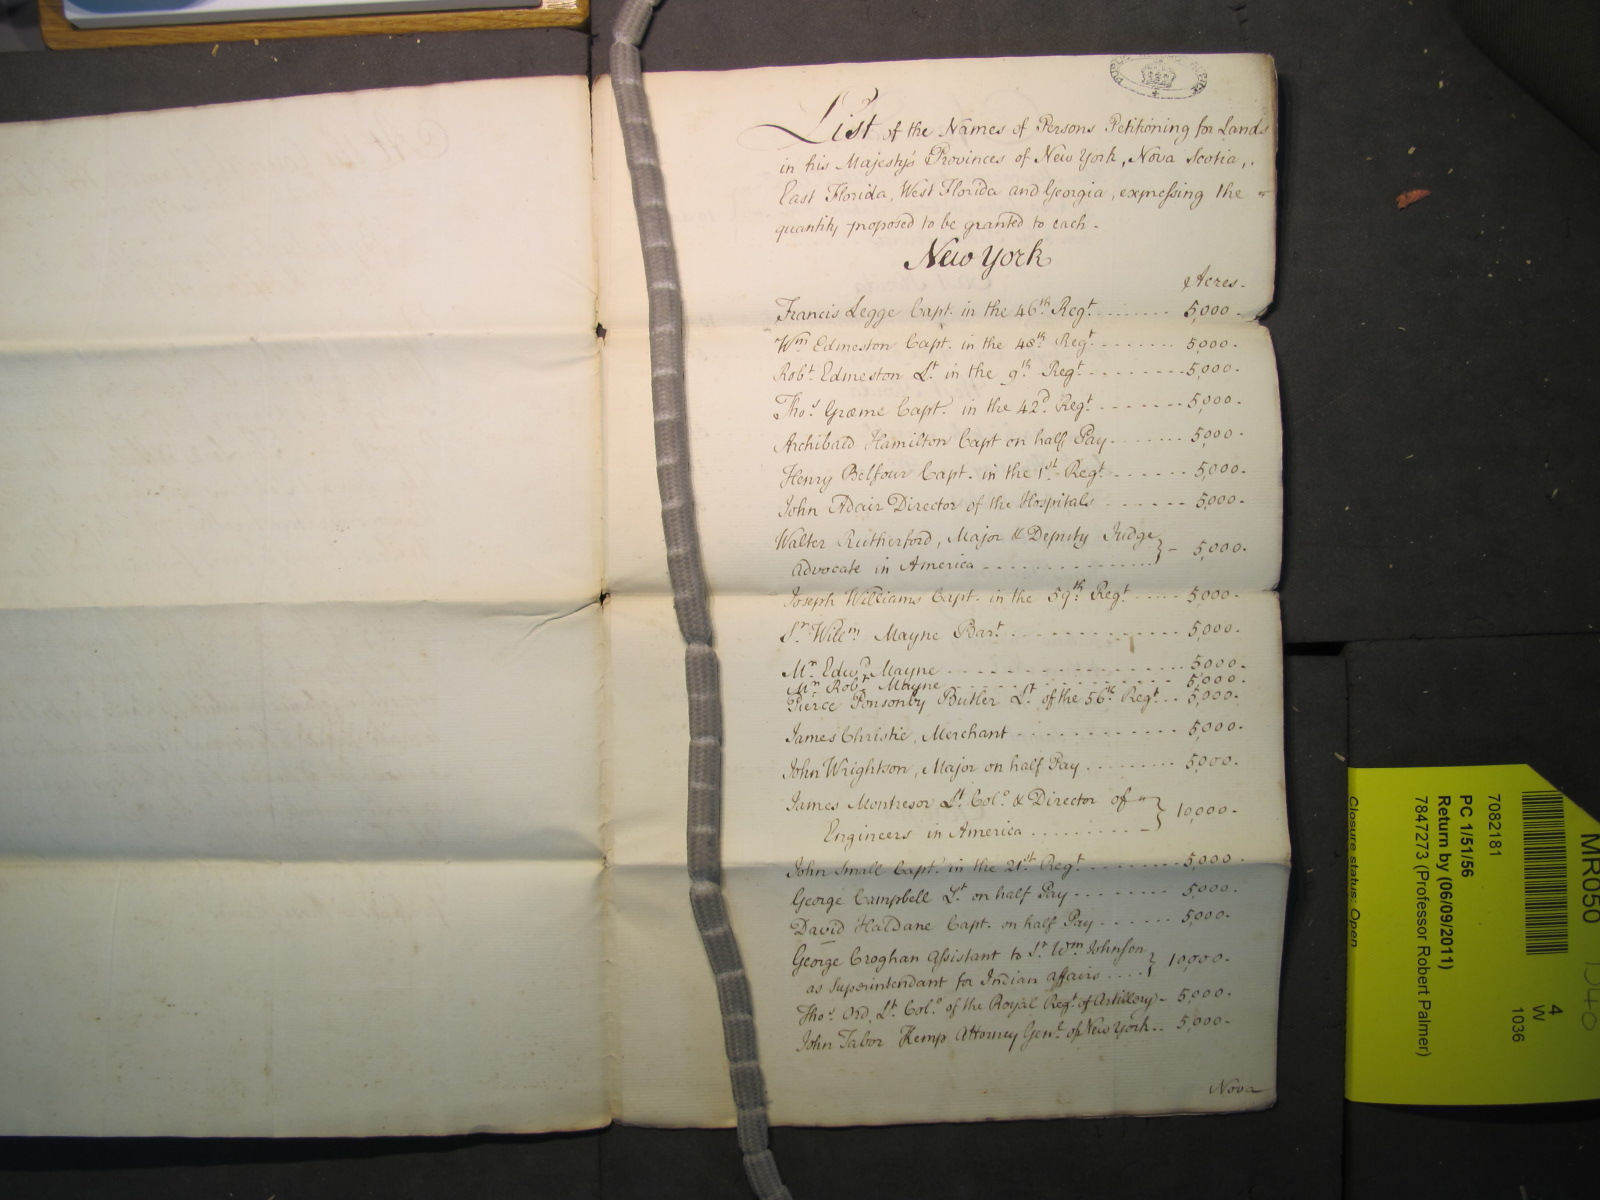 List of the Names of Persons Petitioning for Lands
in his Majesty's Provinces of New York, Nova Scotia,
East Florida, West Florida and Georgia, expressing the
quantity proposed to be granted to each.
New York
Acres.
Francis Legge Capt. in the 46th Regt. ........ 5,000.
Wm Edmeston Capt. in the 48th Regt. ....... 5,000.
Robt. Edmeston Lt. in the 9th Regt. ........ 5,000.
Thos. Græme Capt. in the 42d. Regt. ....... 5,000.
Archibald Hamilton Capt on half Pay. ...... 5,000.
Henry Belfour Capt. in the 1st. Regt. ...... 5,000.
John Adair Director of the Hospitals ...... 5,000.
Walter Rutherford, Major & Deputy Judge
advocate in America .............. } - 5,000.
Joseph Williams Capt. in the 59th Regt. ..... 5,000.
Sr. Willm Mayne Bart. ............. 5,000.
Mr. Edwd. Mayne ................ 5000.
Mr. Robt. Mayne ................ 5,000.
Pierce Ponsonby Butler Lt. of the 56th Regt. .. 5,000.
James Christie, Merchant ........... 5,000.
John Wrightson, Major on half Pay ........ 5,000.
James Montresor Lt. Colo. & Director of
Engineers in America .......... } 10,000.
John Small Capt. in the 21st Regt. ....... 5,000.
George Campbell Lt. on half Pay ........ 5,000.
David Haldane Capt. on half Pay ...... 5,000.
George Croghan assistant to Sr. Wm Johnson
as Superintendant for Indian affairs .... } 10,000.
Thos. Ord, Lt. Colo. of the Royal Regt. of Artillery - 5,000.
John Tabor Kemp Attorney Genl. of New York .. 5,000.
Nova
MR050
4
W
1036
7082181
PC 1/51/56
Return by (06/09/2011)
7847273 (Professor Robert Palmer)
Closure status: Open